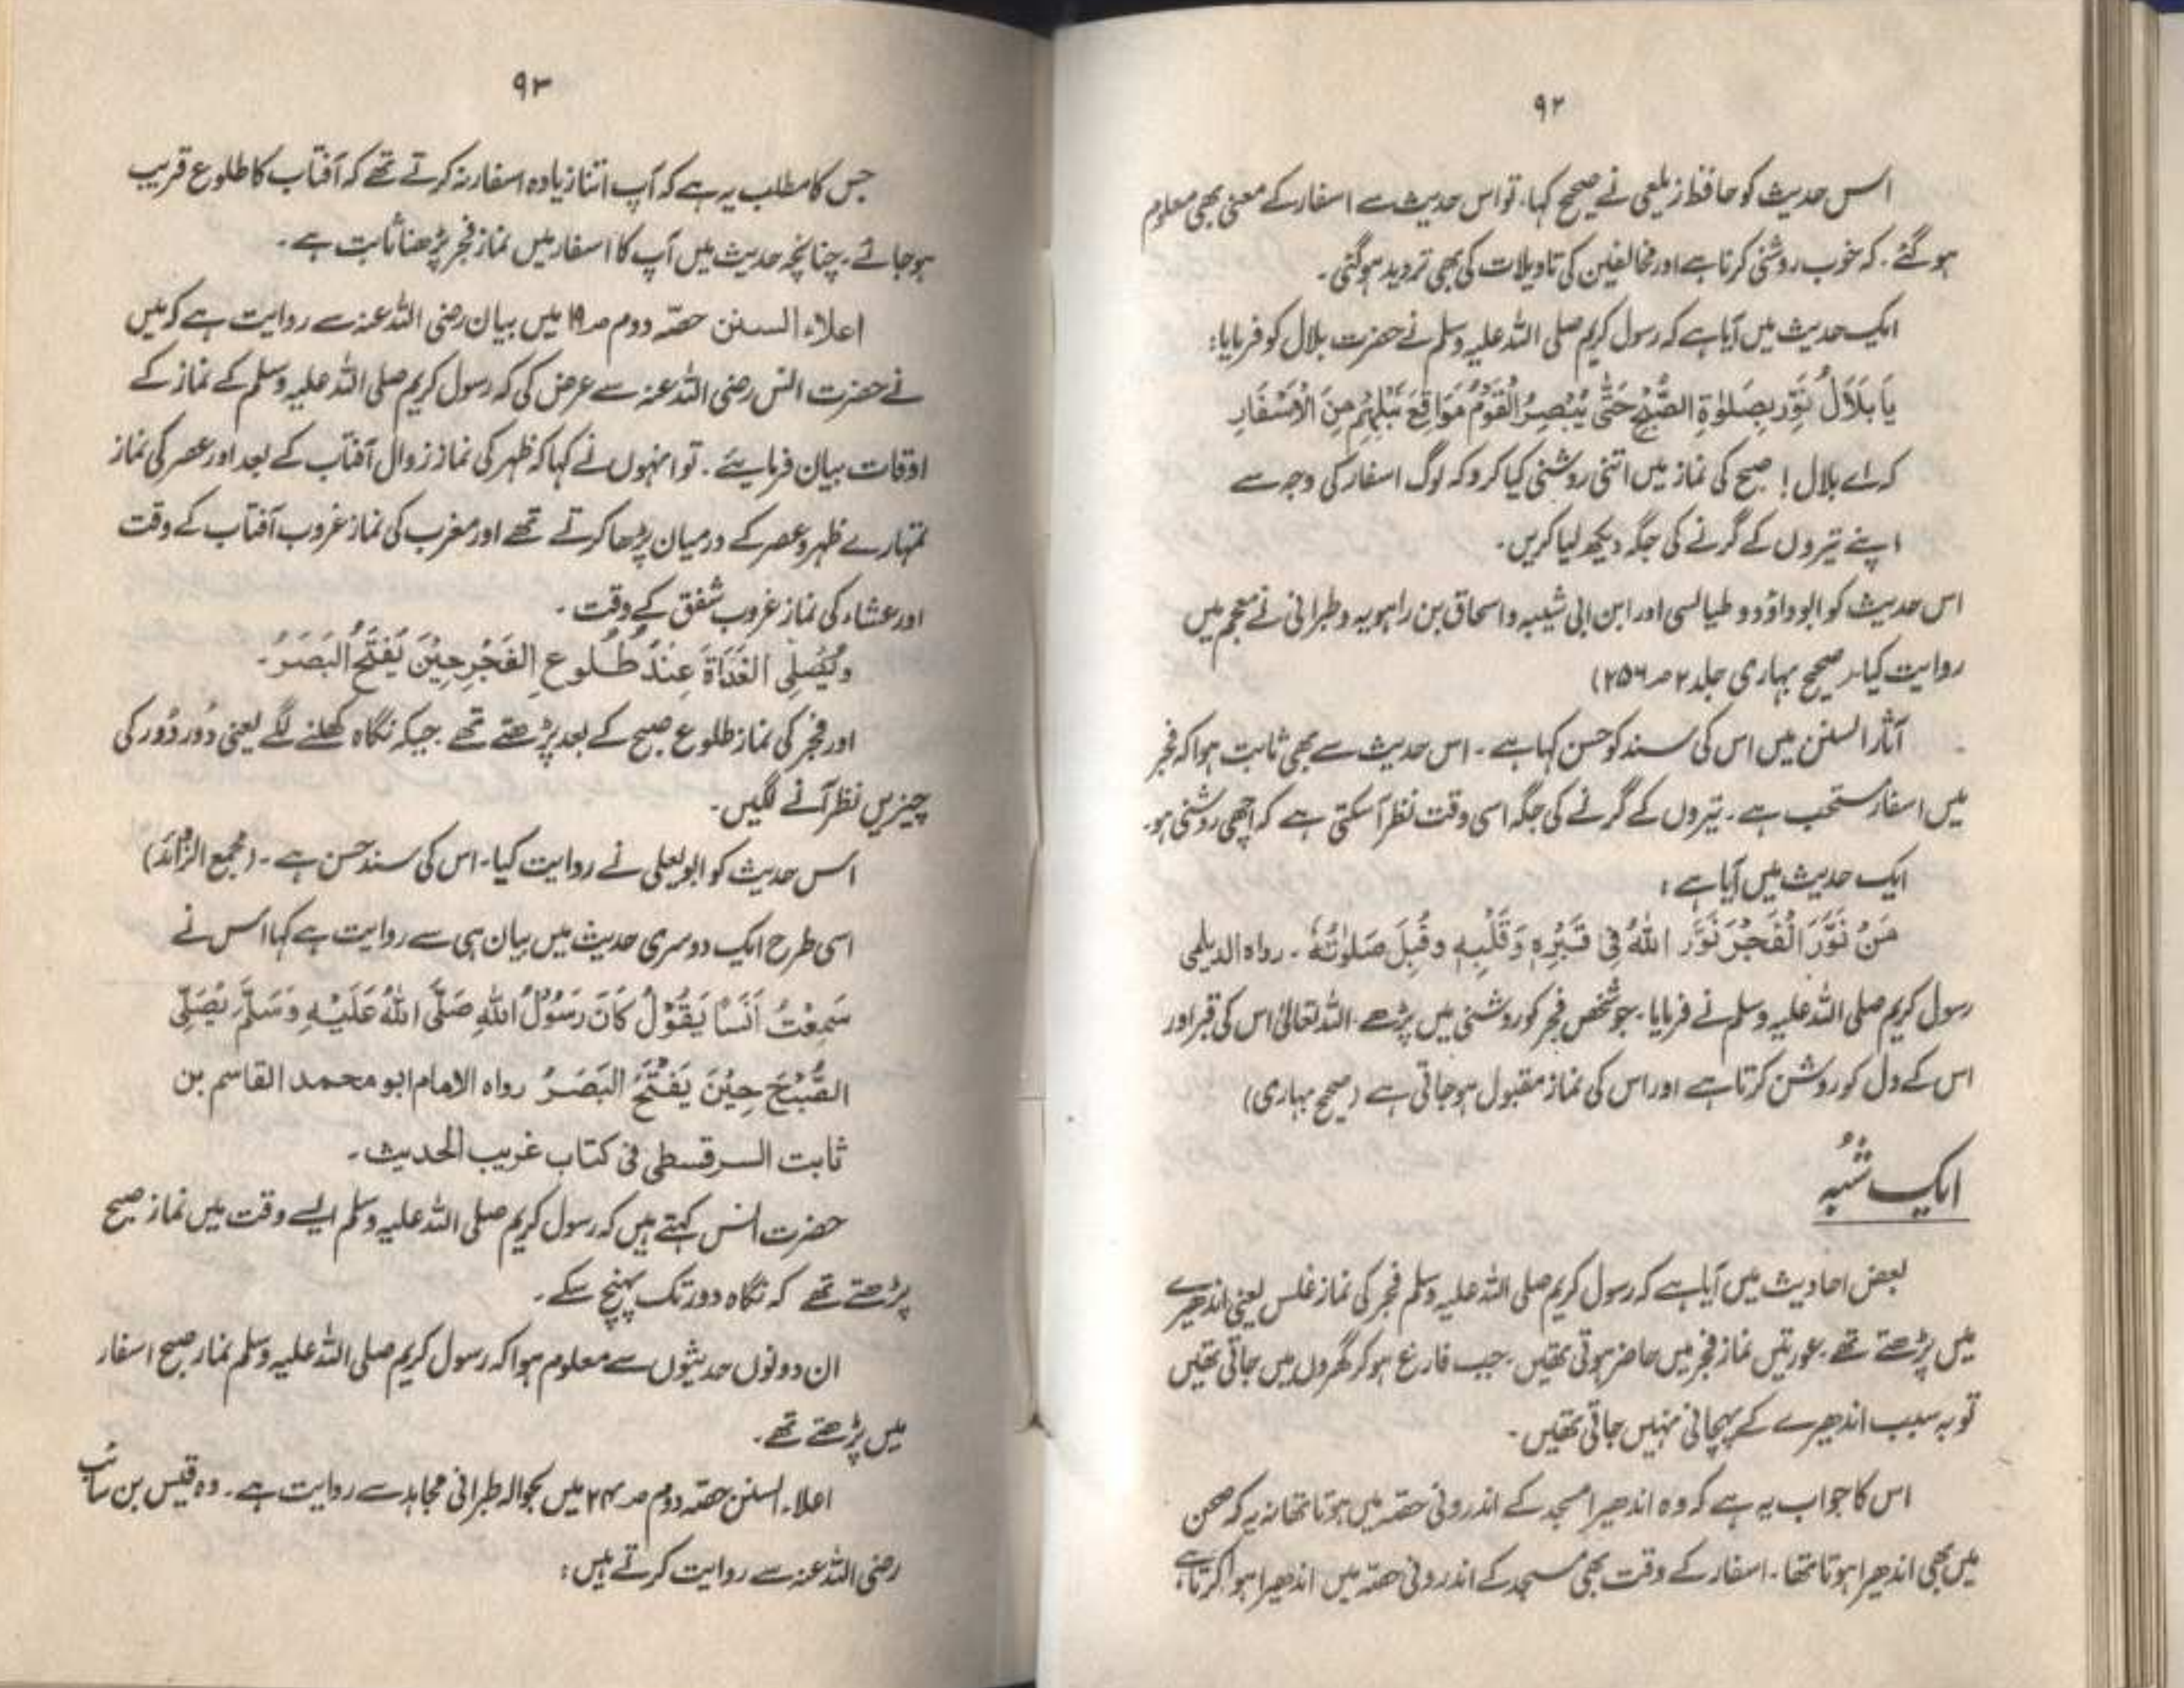 ۹۲
اس حدیث کو حافظ زیلعی نے صحیح کہا، تو اس حدیث سے اسفار کے معنی بھی معلوم
ہو گئے ۔ کہ خوب روشنی کرنا ہے اور مخالفین کی تاویلات کی بھی تردید ہو گئی ۔
ایک حدیث میں آیا ہے کہ رسول کریم صلی اللہ علیہ وسلم نے حضرت بلال کو فرمایا:
یَا بِلَالُ نَوِّر بِصَلٰوةِ الصُّبْحِ حَتّٰی یُبْصِرُ الْقَوْمُ مَوَاقِعَ نَبْلِهِمْ مِنَ الْاَسْفَارِ
کہ اے بلال ! صبح کی نماز میں اتنی روشنی کیا کرو کہ لوگ اسفار کی وجہ سے
اپنے تیروں کے گرنے کی جگہ دیکھ لیا کریں ۔
اس حدیث کو ابو داؤد و طیالسی اور ابن ابی شیبہ و اسحاق بن راہویہ و طبرانی نے معجم میں
روایت کیا۔ (صحیح بہاری جلد ۲ صہ ۲۵۶)
آثار السنن میں اس کی سند کو حسن کہا ہے ۔ اس حدیث سے بھی ثابت ہوا کہ فجر
میں اسفار مستحب ہے ۔ تیروں کے گرنے کی جگہ اسی وقت نظر آ سکتی ہے کہ اچھی روشنی ہو۔
ایک حدیث میں آیا ہے :
مَنْ نَوَّرَ الْفَجْرَ نَوَّرَ اللّٰهُ فِی قَبْرِهٖ وَقَلْبِهٖ وَقُبِلَ صَلٰوتُهٗ ۔ رواه الدیلمی
رسول کریم صلی اللہ علیہ وسلم نے فرمایا ۔ جو شخص فجر کو روشنی میں پڑھے ۔ اللہ تعالیٰ اس کی قبر اور
اس کے دل کو روشن کرتا ہے اور اس کی نماز مقبول ہو جاتی ہے (صحیح بہاری)
ایک شُبہ
بعض احادیث میں آیا ہے کہ رسول کریم صلی اللہ علیہ وسلم فجر کی نماز غلس یعنی اندھیرے
میں پڑھتے تھے ۔ عورتیں نماز فجر میں حاضر ہوتی تھیں ۔ جب فارغ ہو کر گھروں میں جاتی تھیں
تو بہ سبب اندھیرے کے پہچانی نہیں جاتی تھیں ۔
اس کا جواب یہ ہے کہ وہ اندھیرا مسجد کے اندرونی حصّہ میں ہوتا تھا نہ یہ کہ صحن
میں بھی اندھیرا ہوتا تھا ۔ اسفار کے وقت بھی مسجد کے اندرونی حصّہ میں اندھیرا ہوا کرتا ہے
۹۳
جس کا مطلب یہ ہے کہ آپ اتنا زیادہ اسفار نہ کرتے تھے کہ آفتاب کا طلوع قریب
ہو جائے ۔ چنانچہ حدیث میں آپ کا اسفار میں نماز فجر پڑھنا ثابت ہے ۔
اعلاء السنن حصّہ دوم صہ ۱۹ میں بیان رضی اللہ عنہ سے روایت ہے کہ میں
نے حضرت انس رضی اللہ عنہ سے عرض کی کہ رسول کریم صلی اللہ علیہ وسلم کے نماز کے
اوقات بیان فرمایئے ۔ تو انہوں نے کہا کہ ظہر کی نماز زوال آفتاب کے بعد اور عصر کی نماز
تمہارے ظہر و عصر کے درمیان پڑھا کرتے تھے اور مغرب کی نماز غروب آفتاب کے وقت
اور عشاء کی نماز غروب شفق کے وقت ۔
وَیُصَلِّی الْغَدَاةَ عِنْدَ طُلُوعِ الْفَجْرِ حِیْنَ یَفْتَحُ الْبَصَرُ ۔
اور فجر کی نماز طلوع صبح کے بعد پڑھتے تھے جبکہ نگاہ کھلنے لگے یعنی دُور دُور کی
چیزیں نظر آنے لگیں ۔
اس حدیث کو ابو یعلی نے روایت کیا۔ اس کی سند حسن ہے ۔ (مجمع الزّائد)
اسی طرح ایک دوسری حدیث میں بیان ہی سے روایت ہے کہا اس نے
سَمِعْتُ اَنَسًا یَقُوْلُ کَانَ رَسُوْلُ اللّٰهِ صَلَّی اللّٰهُ عَلَیْهِ وَسَلَّمَ یُصَلِّی
الصُّبْحَ حِیْنَ یَفْتَحُ الْبَصَرُ رواه الامام ابو محمد القاسم بن
ثابت السرقسطی فی کتاب غریب الحدیث ۔
حضرت انس کہتے ہیں کہ رسول کریم صلی اللہ علیہ وسلم ایسے وقت میں نماز صبح
پڑھتے تھے کہ نگاہ دور تک پہنچ سکے ۔
ان دونوں حدیثوں سے معلوم ہوا کہ رسول کریم صلی اللہ علیہ وسلم نماز صبح اسفار
میں پڑھتے تھے ۔
اعلاء السنن حصّہ دوم صہ ۲۴ میں بحوالہ طبرانی مجاہد سے روایت ہے ۔ وہ قیس بن سائب
رضی اللہ عنہ سے روایت کرتے ہیں :